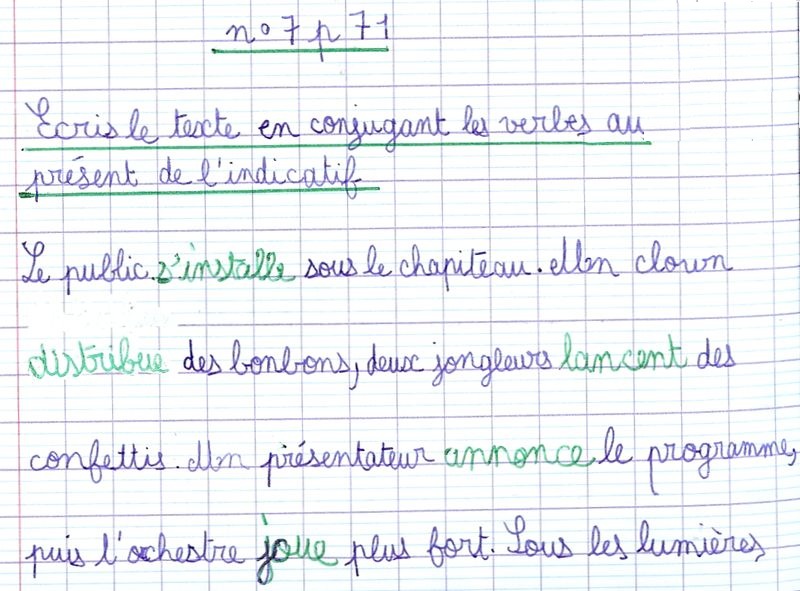 n° 7 p 71
Ecris le texte en conjugant les verbes au
présent de l'indicatif
Le public s'installe sous le chapiteau. Un clown
distribue des bonbons, deux jongleurs lancent des
confettis. Un présentateur annonce le programme,
puis l'orchestre joue plus fort. Sous les lumières